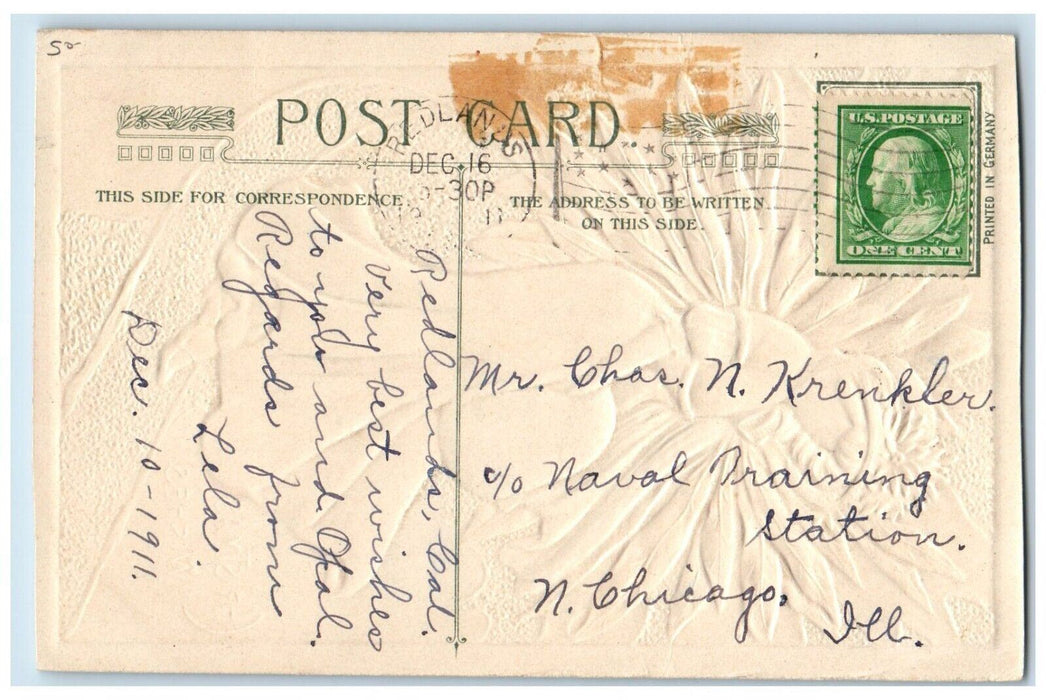 50
POST CARD.
REDLANDS
DEC 16
-30P
11
THIS SIDE FOR CORRESPONDENCE.
THE ADDRESS TO BE WRITTEN
ON THIS SIDE.
U.S. POSTAGE
ONE CENT
PRINTED IN GERMANY
Redlands, Cal.
Very best wishes
to you and Opal.
Regards from
Lela.
Dec. 10-1911.
Mr. Chas. N. Krenkler.
c/o Naval Training
Station.
N. Chicago,
Ill.